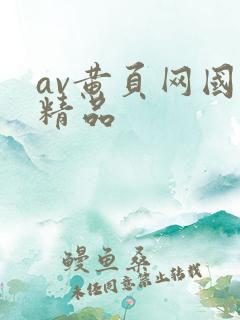 av黄页网国
精品
鳗鱼桑
未经同意禁止转载